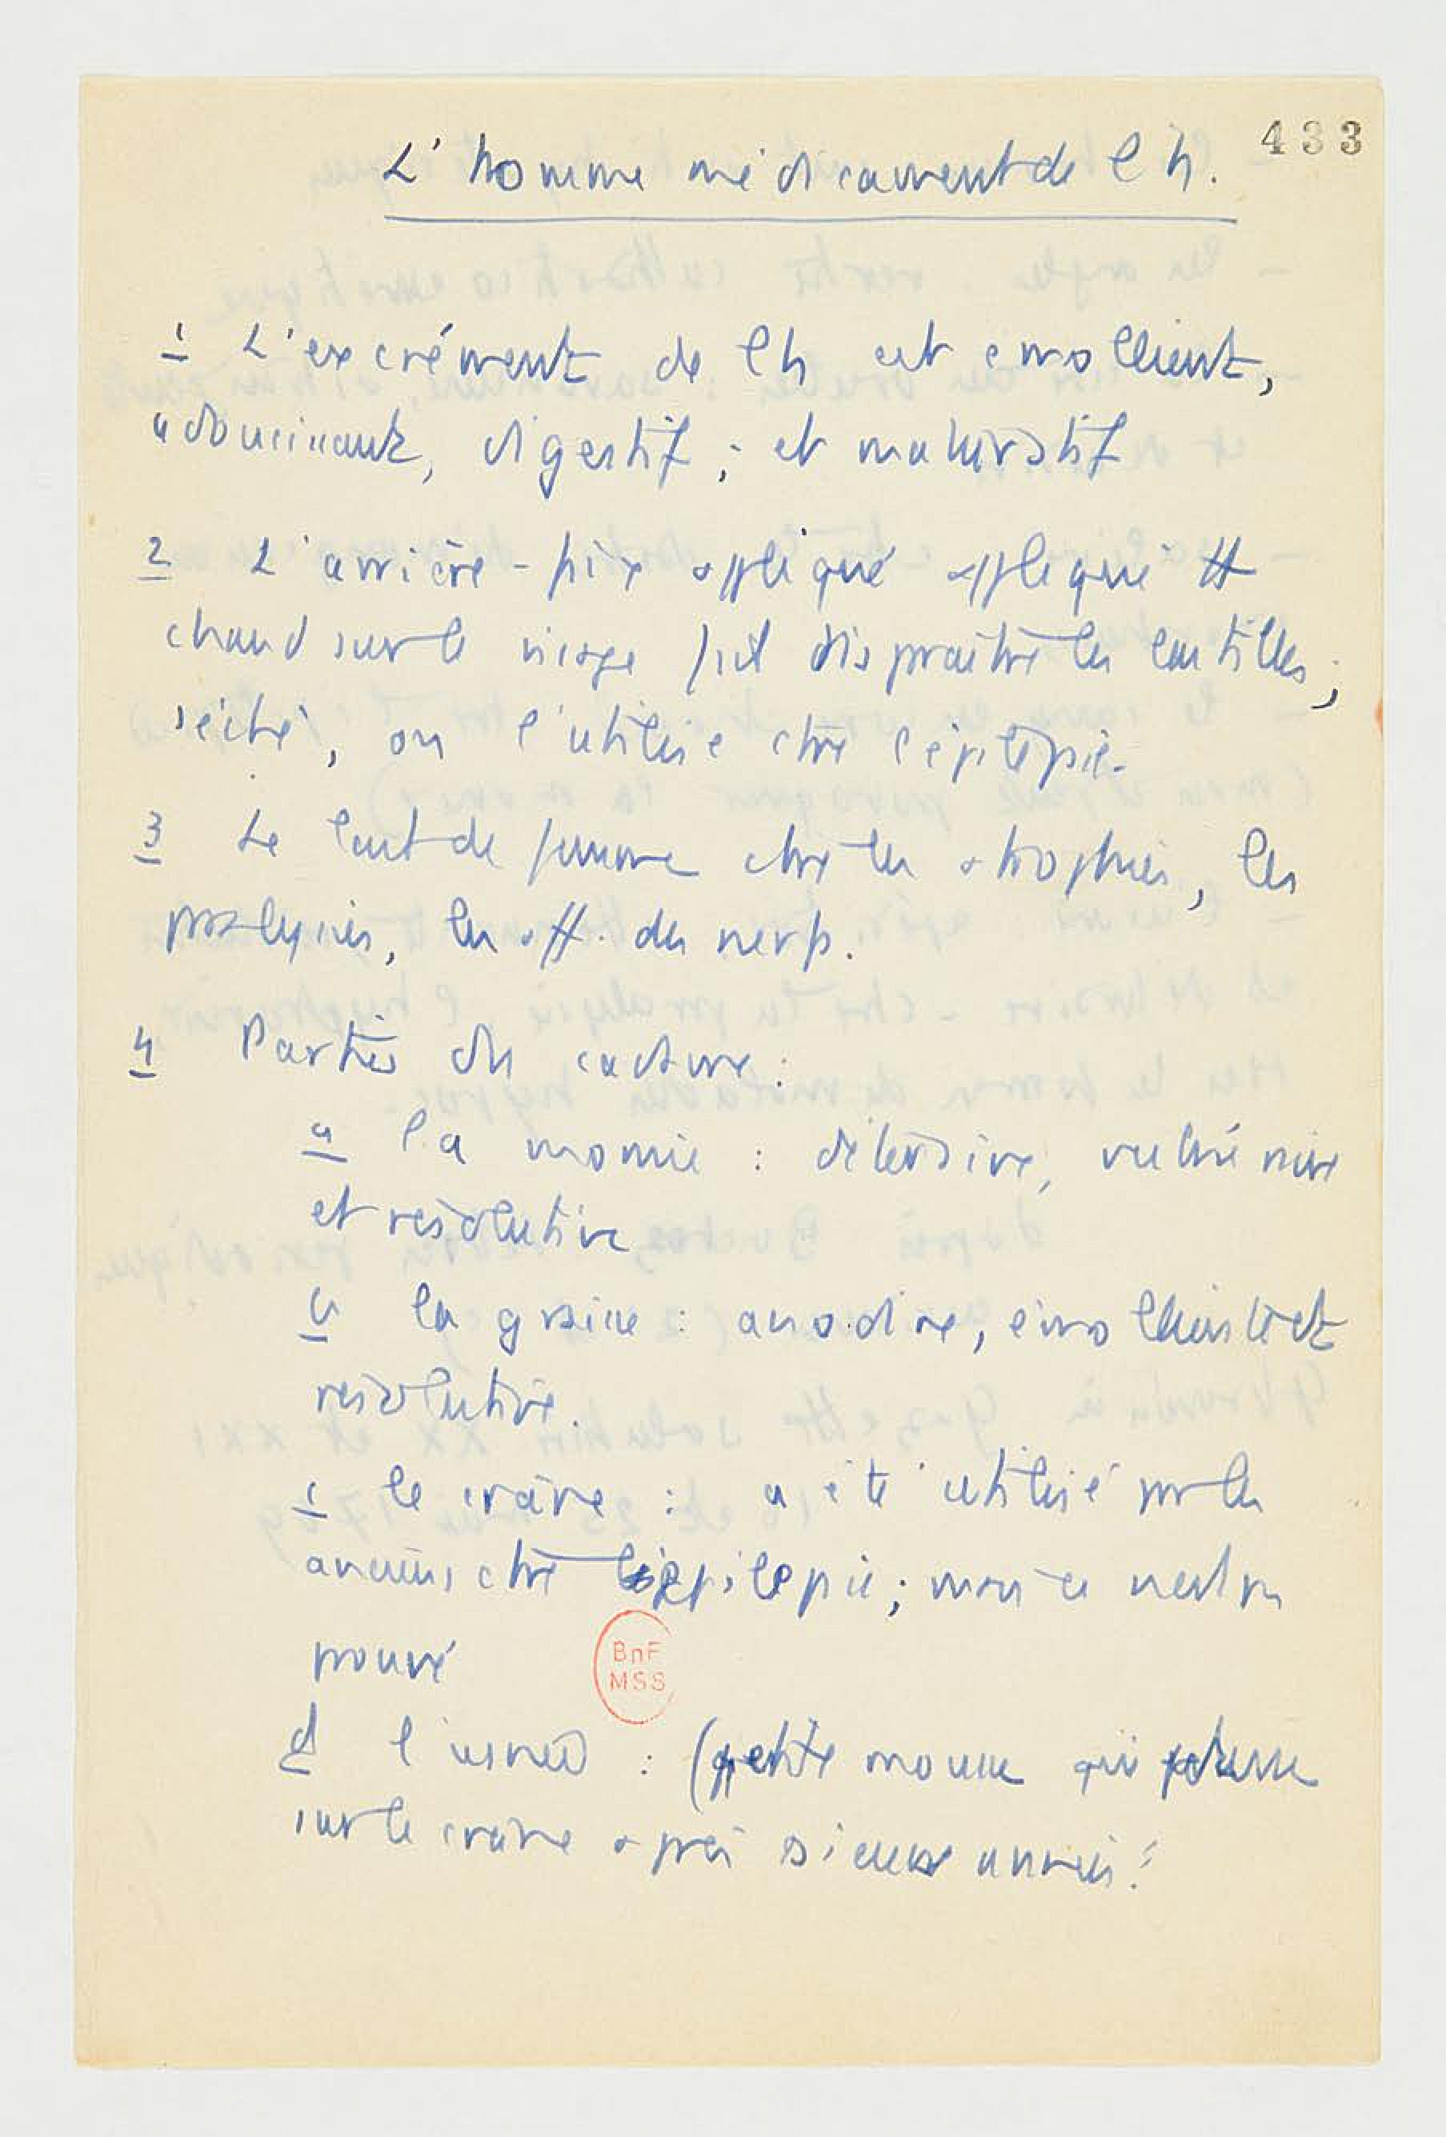 433
L'homme médicament de l'h.
1 L'excrément de l'h est emollient,
adoucissant, digestif ; et maturatif
2 L'arrière-faix appliqué appliqué tt
chaud sur le visage fait disparaître les lentilles ;
séché, on l'utilise ctre l'épilepsie.
3 Le lait de femme ctre les atrophies, les
paralysies, les aff. des nerfs.
4 Parties du cadavre :
a la momie : détersive, vulnéraire
et résolutive
b la graisse : anodine, émolliente et
résolutive.
c le crâne : a été utilisé par les
anciens ctre l'épilepsie ; mais ce n'est pas
prouvé
BnF
MSS
d l'usnée : (petite mousse qui pousse
sur le crâne après années.